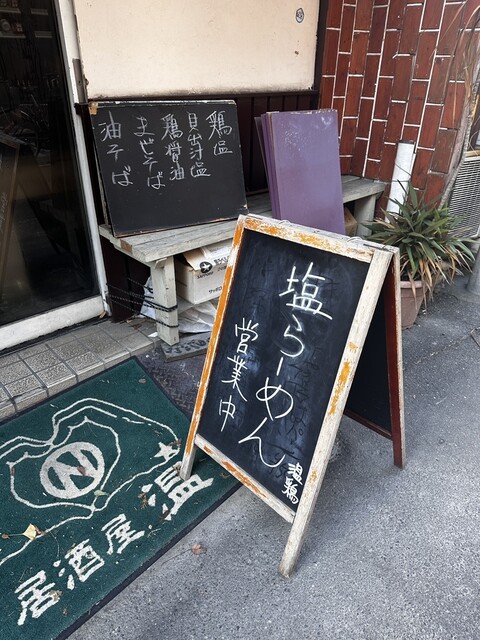 鶏塩
貝出汁塩
鶏醤油
まぜそば
油そば
塩らーめん
営業中
居酒屋 温